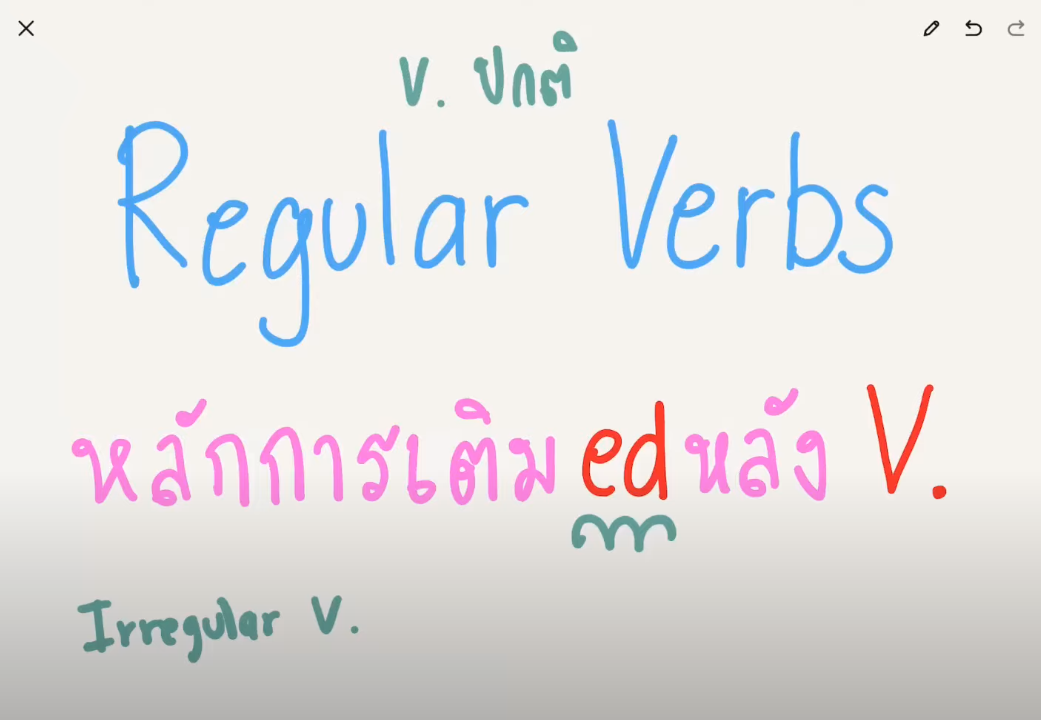 v. ปกติ
Regular Verbs
หลักการเติม ed หลัง V.
Irregular V.